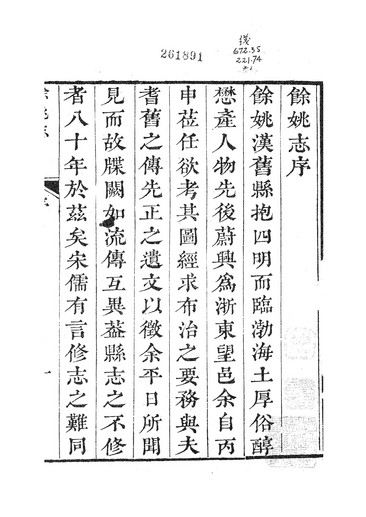 餘姚志序
餘姚漢舊縣抱四明而臨渤海土厚俗醇
懋產人物先後蔚興爲浙東望邑余自丙
申莅任欲考其圖經求布治之要務與夫
耆舊之傳先正之遺文以徵余平日所聞
見而故牒闕如流傳互異葢縣志之不修
者八十年於茲矣宋儒有言修志之難同
餘姚志
序
一
261891
672.35
221.74